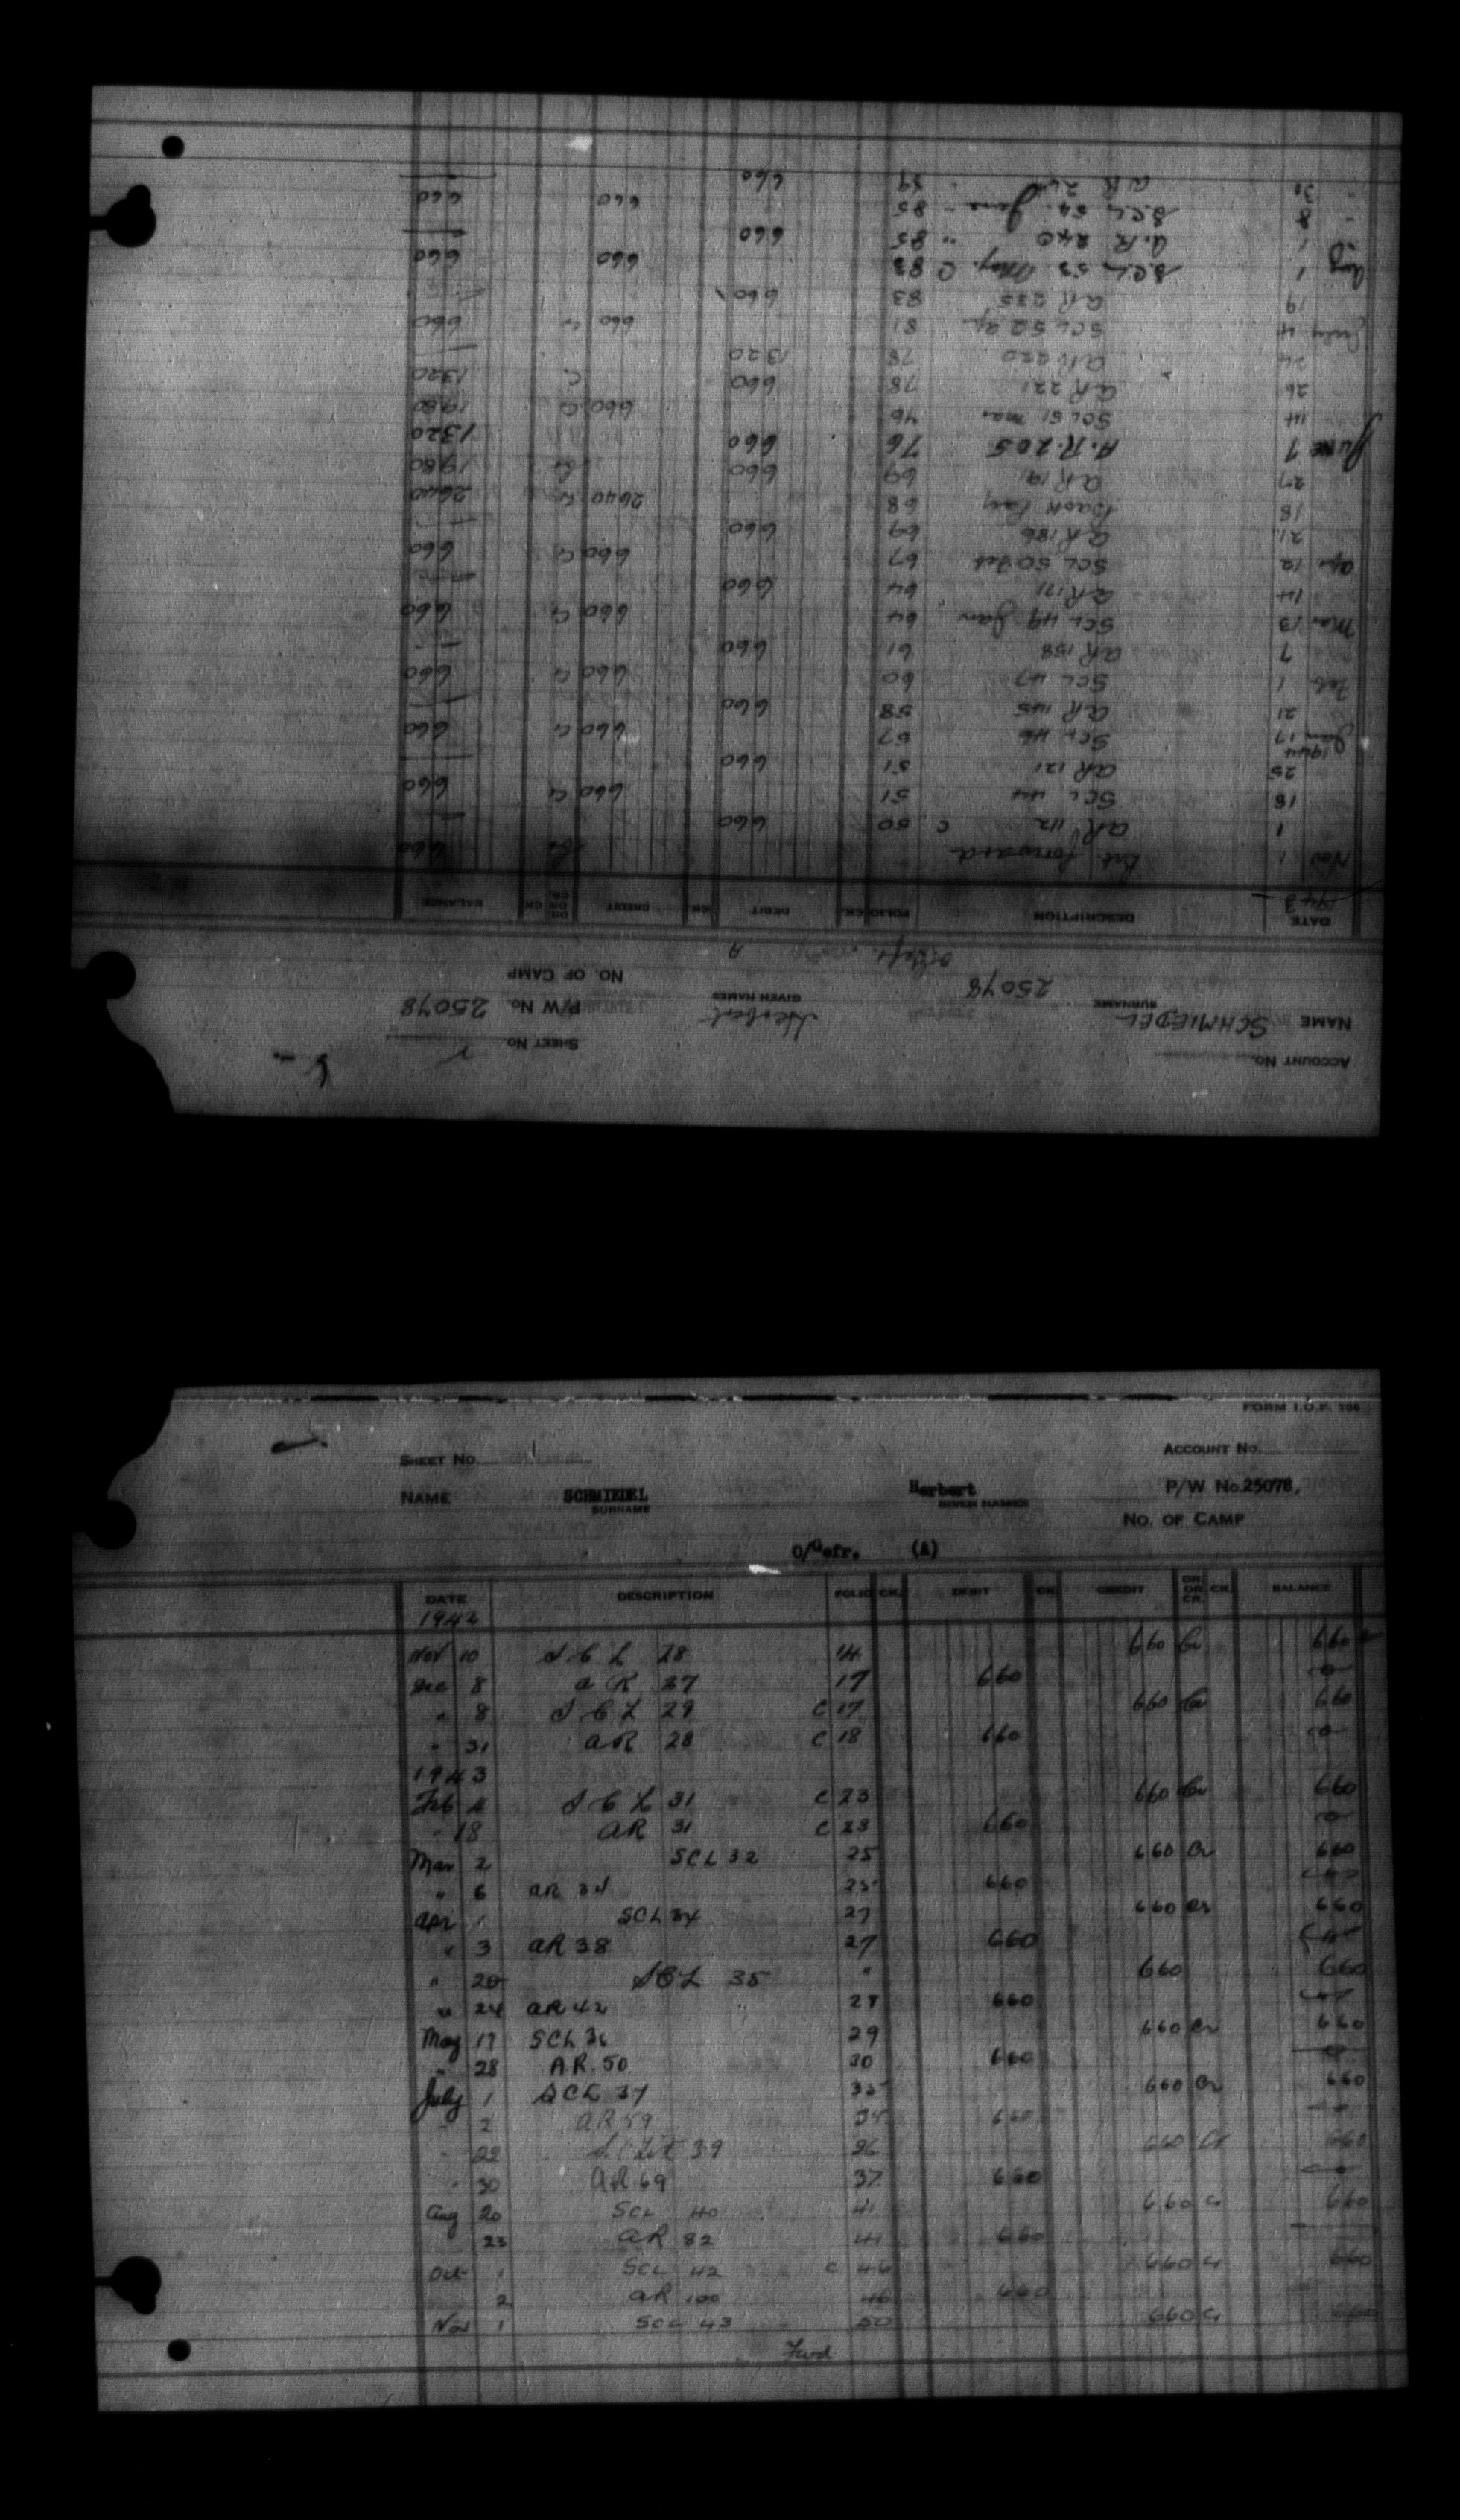 ACCOUNT No.
SHEET No.
NAME SCHMIEDEL Herbert P/W No. 25078
SURNAME GIVEN NAMES
25078 NO. OF CAMP
A
DATE DESCRIPTION FOLIO CK. DEBIT CK. CREDIT DR. OR CR. CK. BALANCE
1943
Nov 1 forward 660
1 AR 112 C 50 660 —
18 SCL 44 51 660 Cr 660
25 AR 121 51 660 —
1944
Jan 17 SCL 46 57 660 Cr 660
21 AR 145 58 660 —
Feb 1 SCL 47 60 660 Cr 660
7 AR 158 61 660 —
Mar 13 SCL 49 Jan 64 660 Cr 660
14 AR 171 64 660 —
Apr 12 SCL 50 Feb 67 660 Cr 660
21 AR 186 69 660 —
18 Back Pay 68 2640 Cr 2640
27 AR 191 69 660 Cr 1980
June 7 A.R. 205 76 660 1320
14 SCL 51 mar 76 660 Cr 1980
26 AR 221 78 660 C 1320
24 AR 220 78 1320 —
July 4 SCL 52 ap 81 660 Cr 660
19 AR 235 83 660 —
Aug 1 S.C.L 53 May C 83 660 660
1 A.R 240 " 85 660 —
" 8 S.C.L 54 June " 85 660 660
" 31 AR 89 660 —
FORM I.O.P. 106
SHEET No. 1 ACCOUNT No.
NAME SCHMIEDEL Herbert P/W No. 25078,
SURNAME GIVEN NAMES
NO. OF CAMP
O/Gefr. (A)
DATE DESCRIPTION FOLIO CK. DEBIT CK. CREDIT DR. OR CR. CK. BALANCE
1942
Nov 10 S C L 28 14 660 Cr 660
Dec 8 a R 27 17 660 —0—
" 8 S C L 29 C 17 660 Cr 660
" 31 aR 28 C 18 660 —0—
1943
Feb 4 S C L 31 C 23 660 Cr 660
" 18 AR 31 C 23 660 —0—
Mar 2 SCL 32 25 660 Cr 660
" 6 AR 34 25 660 —0—
Apr 1 SCL 34 27 660 Cr 660
" 3 AR 38 27 660 —0—
" 20 SCL 35 " 660 660
" 24 AR 42 28 660 —0—
May 19 SCL 36 29 660 Cr 660
" 28 A.R. 50 30 660 —0—
July 1 SCL 37 35 660 Cr 660
" 2 AR 59 35 660 —0—
" 22 39 36 660 Cr 660
" 30 AR 69 37 660 —0—
Aug 20 SCL 40 41 660 Cr 660
23 AR 82 41 660 —
Oct 1 SCL 42 C 46 660 Cr 660
2 AR 100 46 660
Nov 1 SCL 43 50 660 Cr 660
Fwd